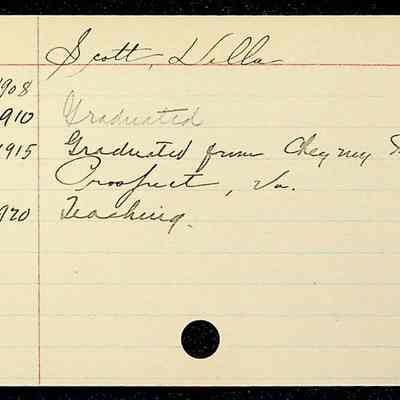 Scott, Della
1908
1910 Graduated
1915 Graduated from Cheyney
Prospect, Va.
1920 Teaching.